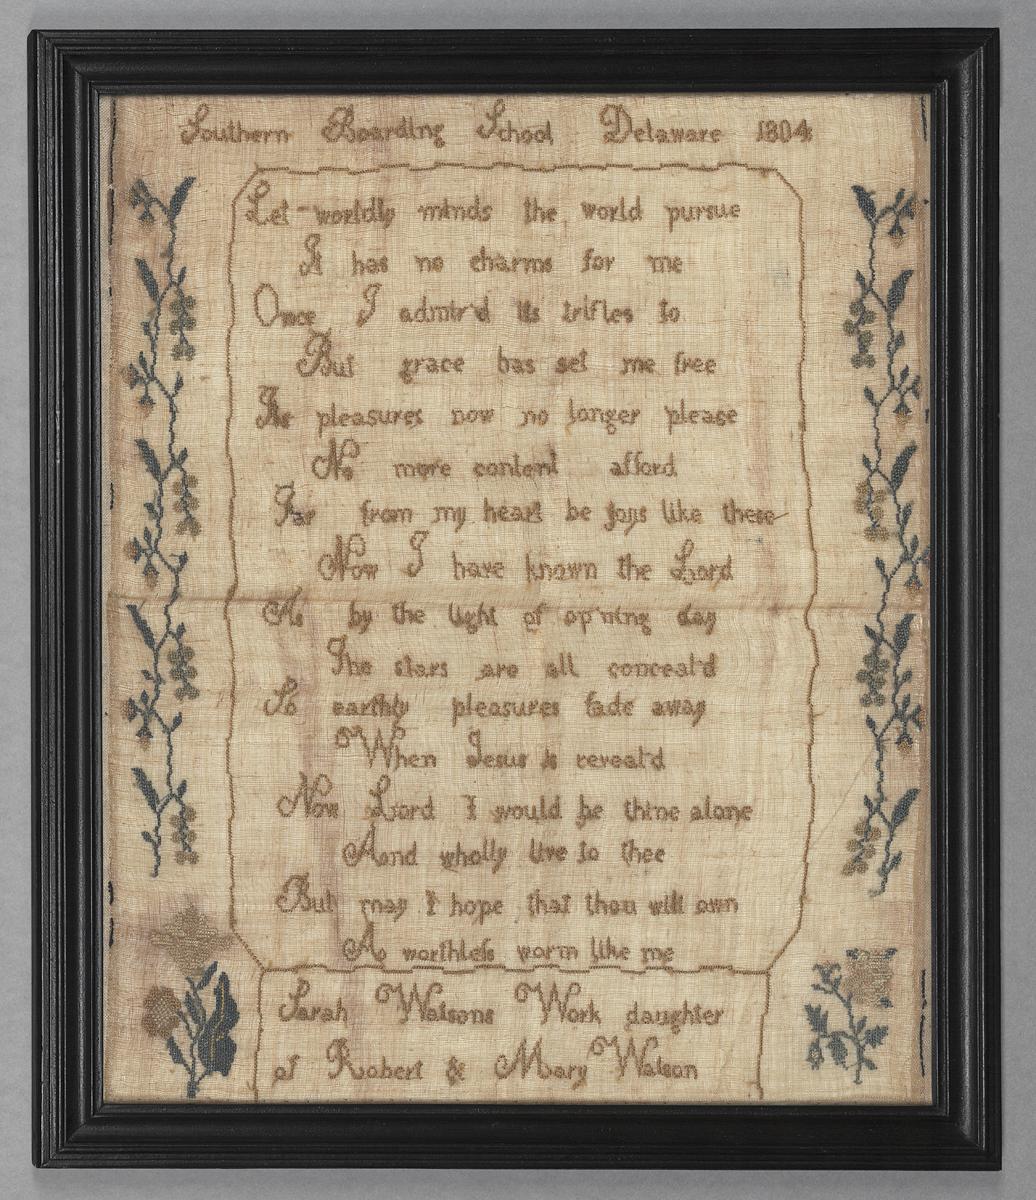 Southern Boarding School Delaware 1804
Let worldly minds the world pursue
It has no charms for me
Once I admir'd its trifles to
But grace has set me free
Its pleasures now no longer please
No more content afford
Far from my heart be joys like these
Now I have known the Lord
As by the light of op'ning day
The stars are all conceal'd
So earthly pleasures fade away
When Jesus is reveal'd
Now Lord I would be thine alone
And wholly live to thee
But may I hope that thou will own
A worthleſs worm like me
Sarah Watsons Work daughter
of Robert & Mary Watson